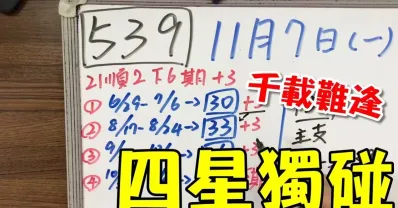 539 11月7日(一)
21順2下6期+3
① 6/29-7/6→30+3
千載難逢
② 8/17-8/24→33+3
主支
③ 9/
④ 10/
四星獨碰